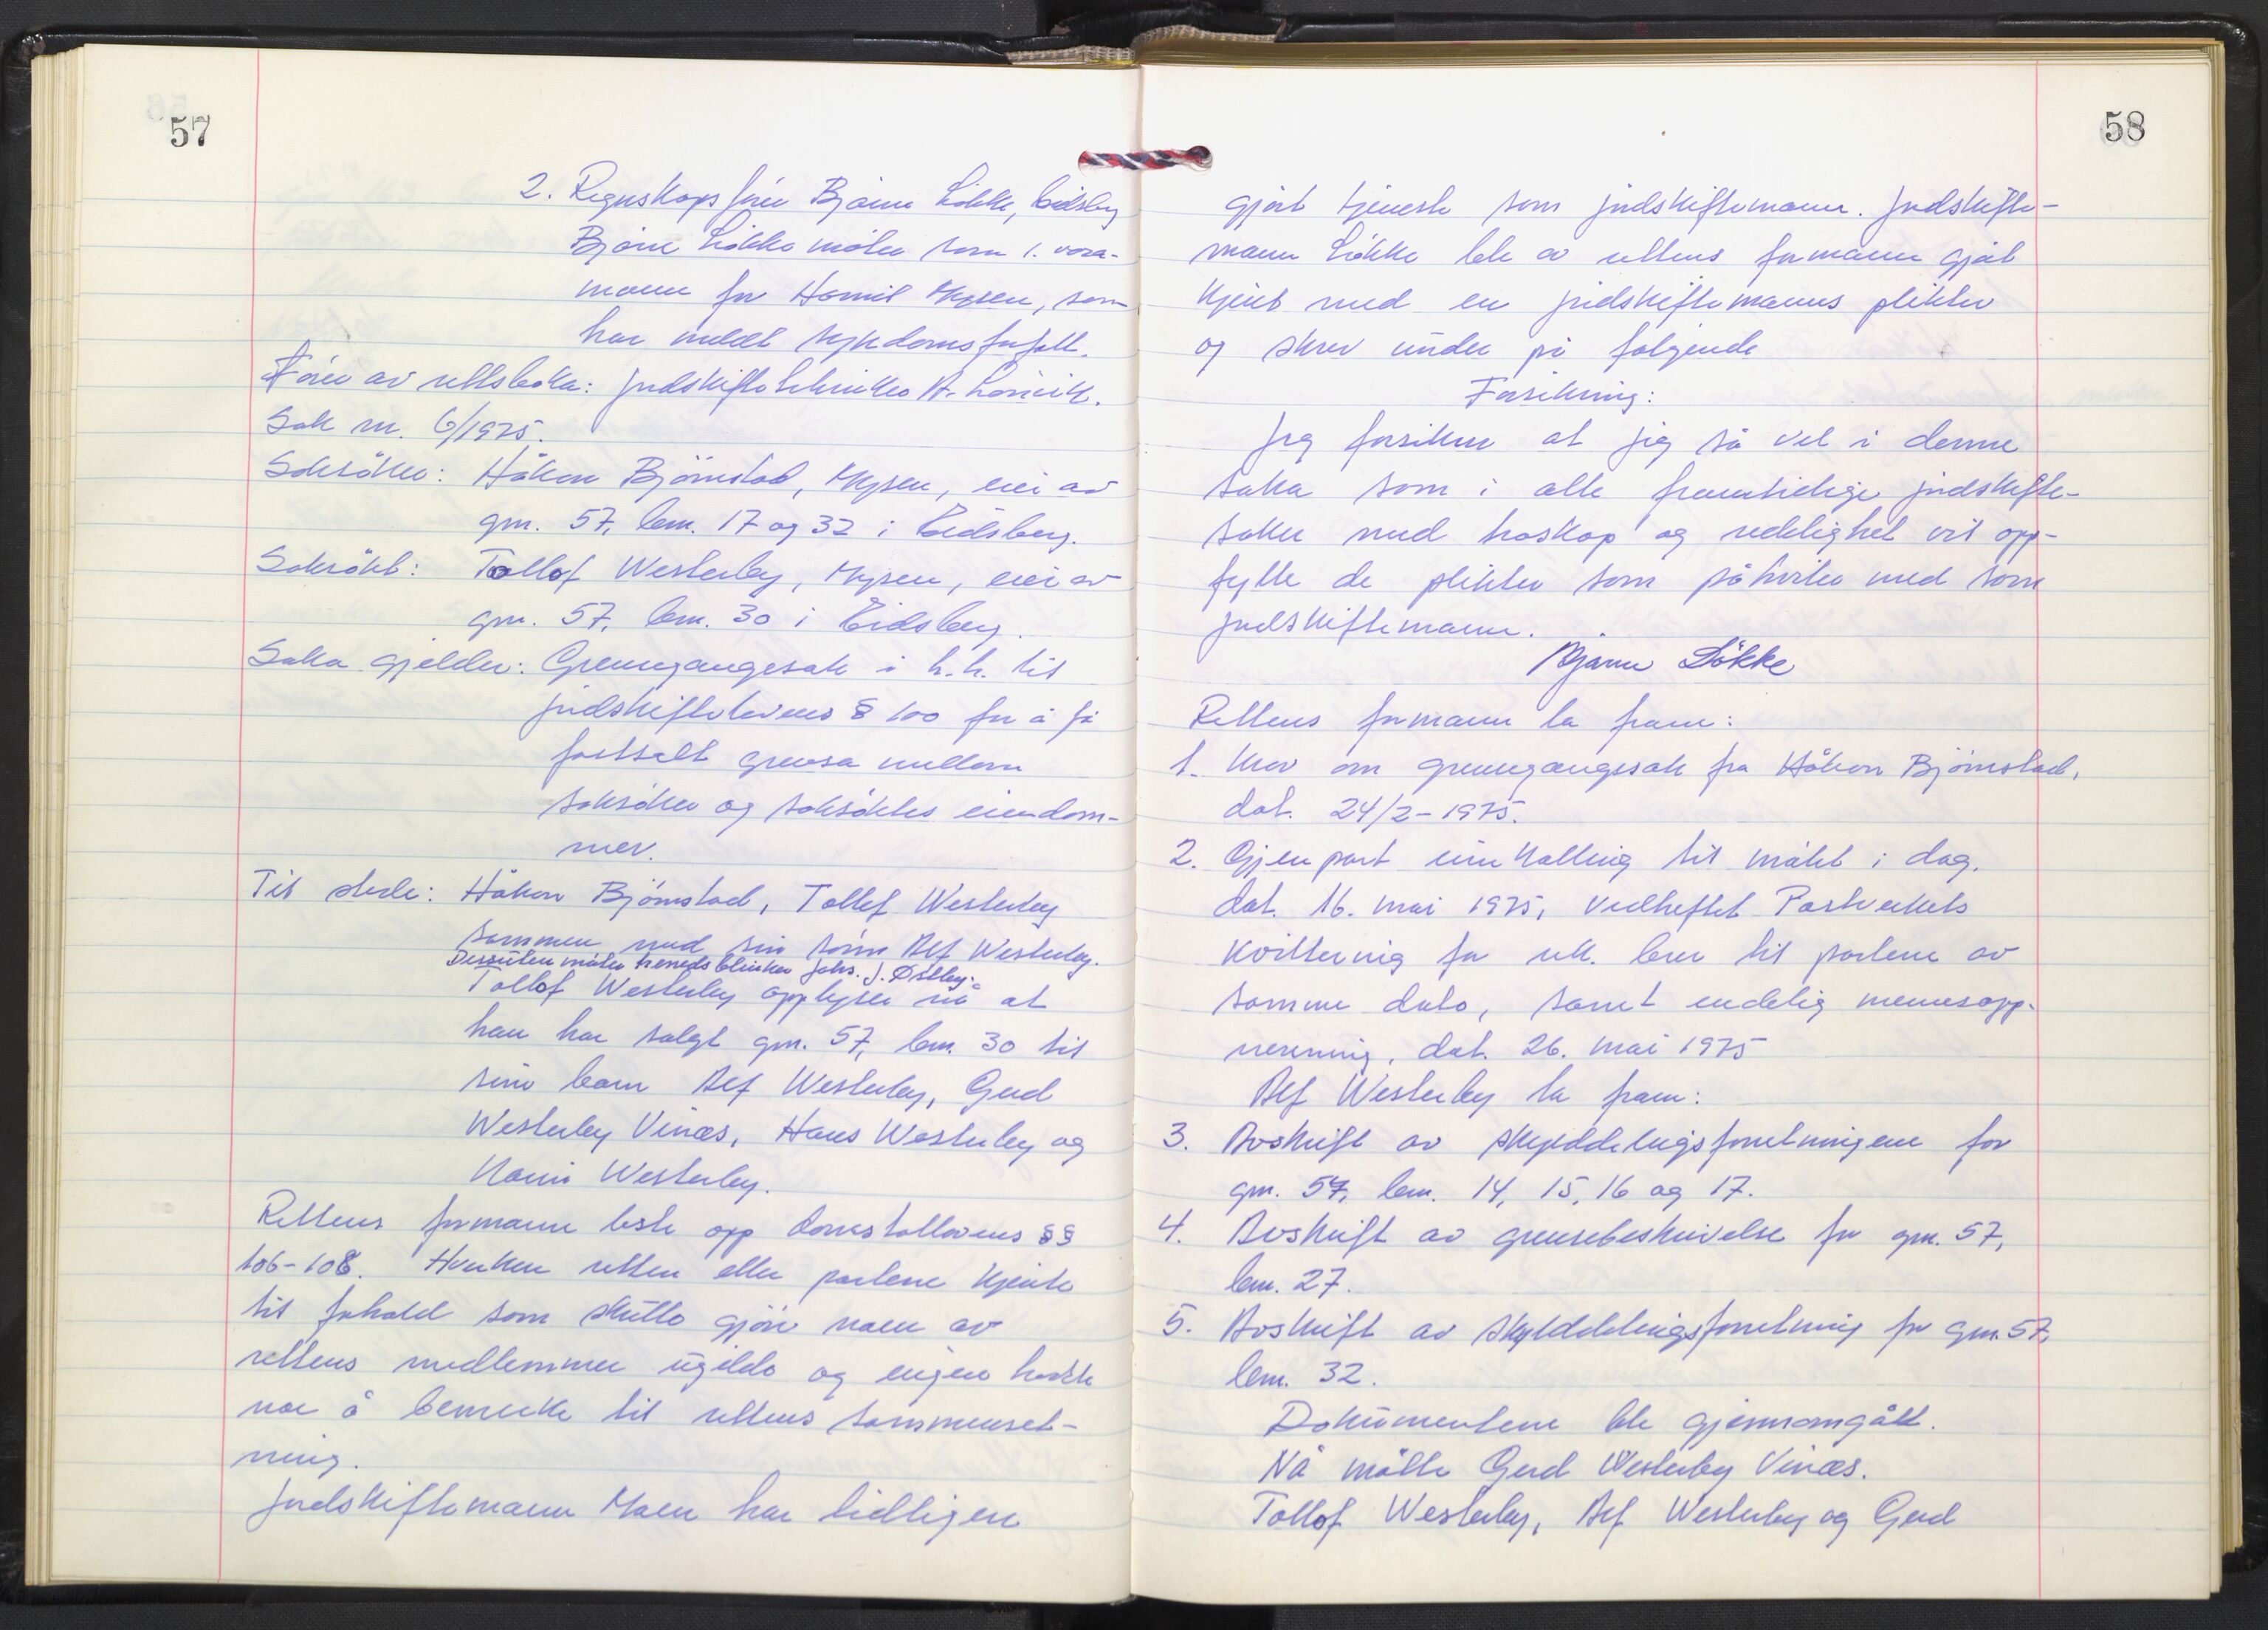 57
2. Regnskapsfører Bjarne Løkke, Eidsberg
Bjarne Løkke møter som 1. vara-
mann for Harald Mysen, som
har meldt sykdomsforfall.
Fører av rettsboka: jordskiftetekniker A. Lorvik.
Sak nr. 6/1975.
Saksøker: Håkon Bjørnstad, Mysen, eier av
gnr. 57, bnr. 17 og 32 i Eidsberg.
Saksøkt: Tollof Westerby, Mysen, eier av
gnr. 57, bnr. 30 i Eidsberg.
Saka gjelder: Grensegangssak i h.h. til
jordskiftelovens § 100 for å få
fastsatt grensa mellom
saksøker og saksøktes eiendom-
mer.
Til stede: Håkon Bjørnstad, Tollef Westerby
sammen med sin sønn Alf Westerby.
Dessuten møter herredsblinker Johs. J. Østby.
Tollof Westerby opplyser nå at
han har solgt gnr. 57, bnr. 30 til
sine barn Alf Westerby, Gerd
Westerby Vinæs, Hans Westerby og
Westerby.
Rettens formann leste opp domstollovens §§
106-108. Hverken retten eller partene kjente
til forhold som skulle gjøre noen av
rettens medlemmer ugilde og ingen hadde
noe å bemerke til rettens sammenset-
ning.
Jordskiftemann Moen har tidligere
58
gjort tjeneste som jordskiftemann. Jordskifte-
mann Løkke ble av rettens formann gjort
kjent med en jordskiftemanns plikter
og skrev under på følgende
Forsikring:
Jeg forsikrer at jeg så vel i denne
saka som i alle fremtidige jordskifte-
saker med troskap og redelighet vil opp-
fylle de plikter som påhviler med som
jordskiftemann.
Bjarne Løkke
Rettens formann la fram:
1. Krav om grensegangssak fra Håkon Bjørnstad,
dat. 24/2-1975.
2. Gjenpart innkalling til møtet i dag,
dat. 16. mai 1975, vedheftet Postverkets
kvittering for rek. brev til partene av
samme dato, samt endelig mannsopp-
nevning, dat. 26. mai 1975
Alf Westerby la fram:
3. Avskrift av skylddelingsforretningene for
gnr. 57, bnr. 14, 15, 16 og 17.
4. Avskrift av grensebeskrivelse for gnr. 57,
bnr. 27.
5. Avskrift av skylddelingsforretning for gnr. 57,
bnr. 32.
Dokumentene ble gjennomgått.
Nå møtte Gerd Westerby Vinæs.
Tollof Westerby, Alf Westerby og Gerd